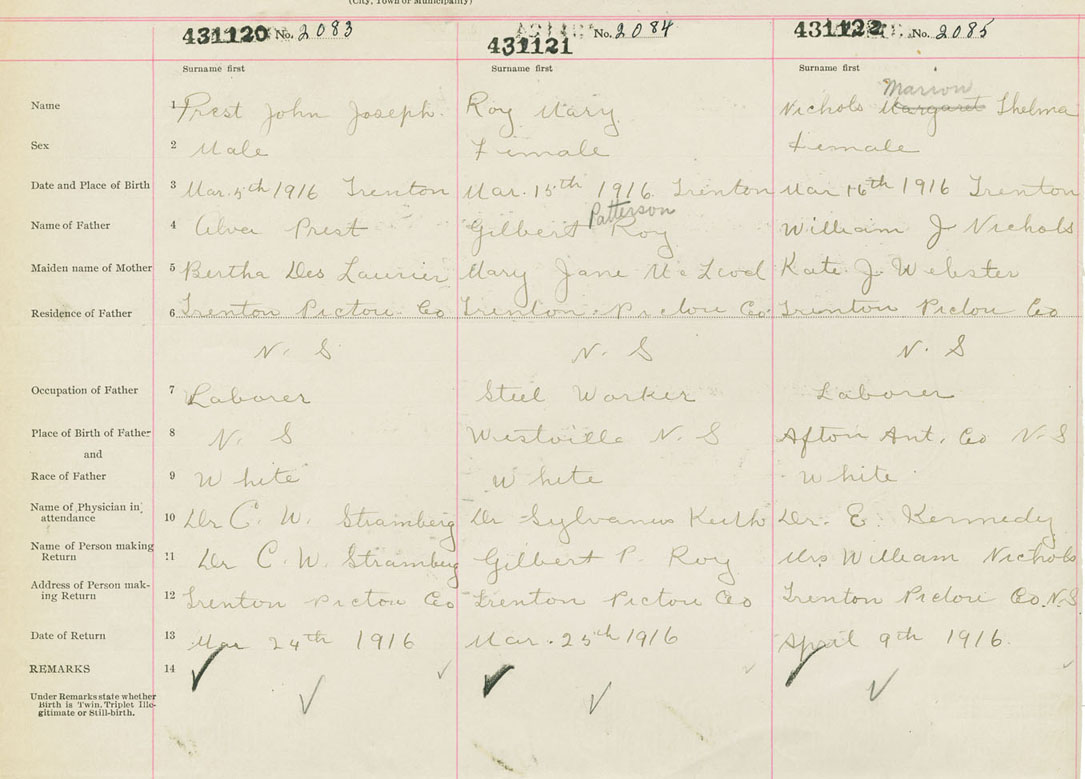 (City, Town or Municipality)
431120 No. 2083
431121 No. 2084
431122 No. 2085
Surname first Surname first Surname first
Marion
Name 1 Prest John Joseph. Roy Mary Nichols Margaret Thelma
Sex 2 Male Female Female
Date and Place of Birth 3 Mar. 5th 1916 Trenton Mar. 15th 1916 Trenton Mar 16th 1916 Trenton
Patterson
Name of Father 4 Alva Prest Gilbert Roy William J Nichols
Maiden name of Mother 5 Bertha Des Laurier Mary Jane McLeod Kate J. Webster
Residence of Father 6 Trenton Pictou Co Trenton Pictou Co. Trenton Pictou Co
N. S N. S N. S
Occupation of Father 7 Laborer Steel Worker Laborer
Place of Birth of Father 8 N. S Westville N. S Afton Ant. Co N. S
and
Race of Father 9 White White White
Name of Physician in attendance 10 Dr C. W. Stramberg Dr Sylvanus Keith Dr. E. Kennedy
Name of Person making Return 11 Dr C. W. Stramberg Gilbert P. Roy Mrs William Nichols
Address of Person making Return 12 Trenton Pictou Co Trenton Pictou Co Trenton Pictou Co. N.S
Date of Return 13 Mar 24th 1916 Mar. 25th 1916 April 9th 1916.
REMARKS 14
Under Remarks state whether
Birth is Twin, Triplet Ille-
gitimate or Still-birth.